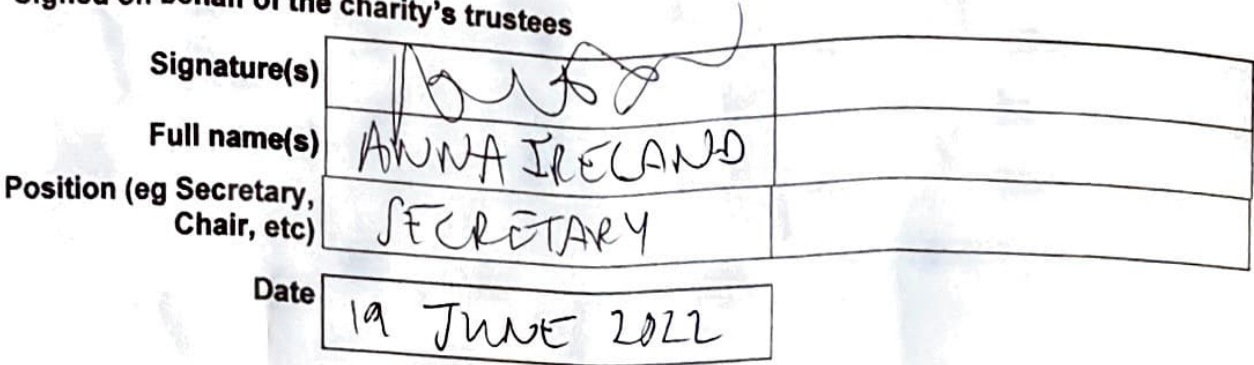 Signed on behalf of the charity's trustees
Signature(s)
Full name(s) ANNA IRELAND
Position (eg Secretary,
Chair, etc) SECRETARY
Date 19 JUNE 2022